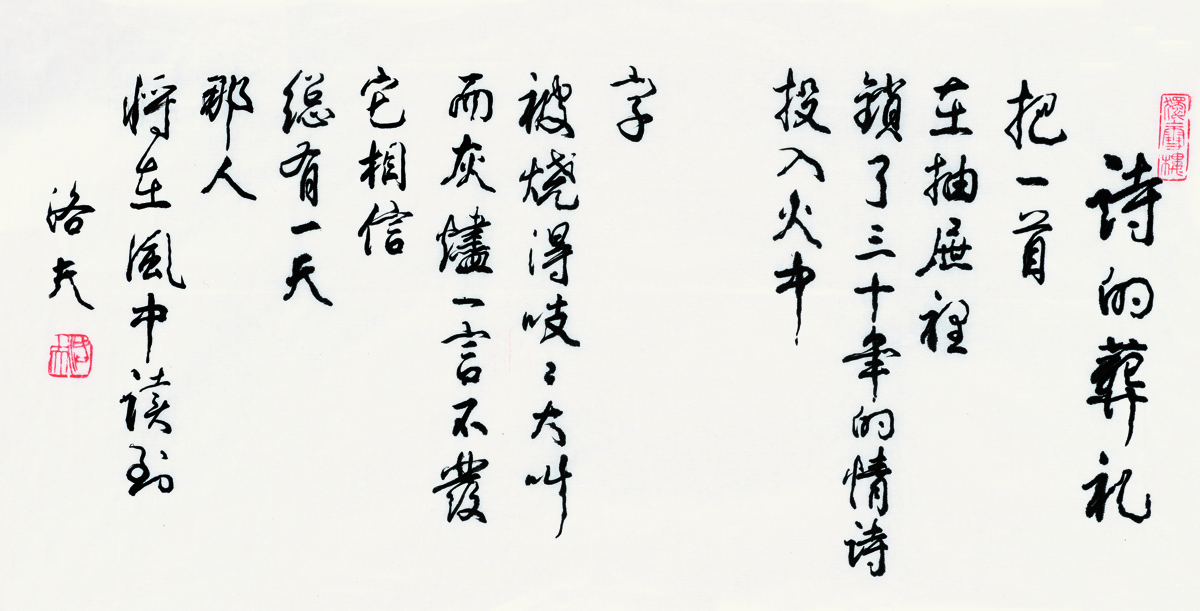 雪樓
诗的葬礼
把一首
在抽屉裡
鎖了三十年的情诗
投入火中
字
被烧得吱々大叫
而灰燼一言不發
它相信
總有一天
那人
将在風中读到
洛夫